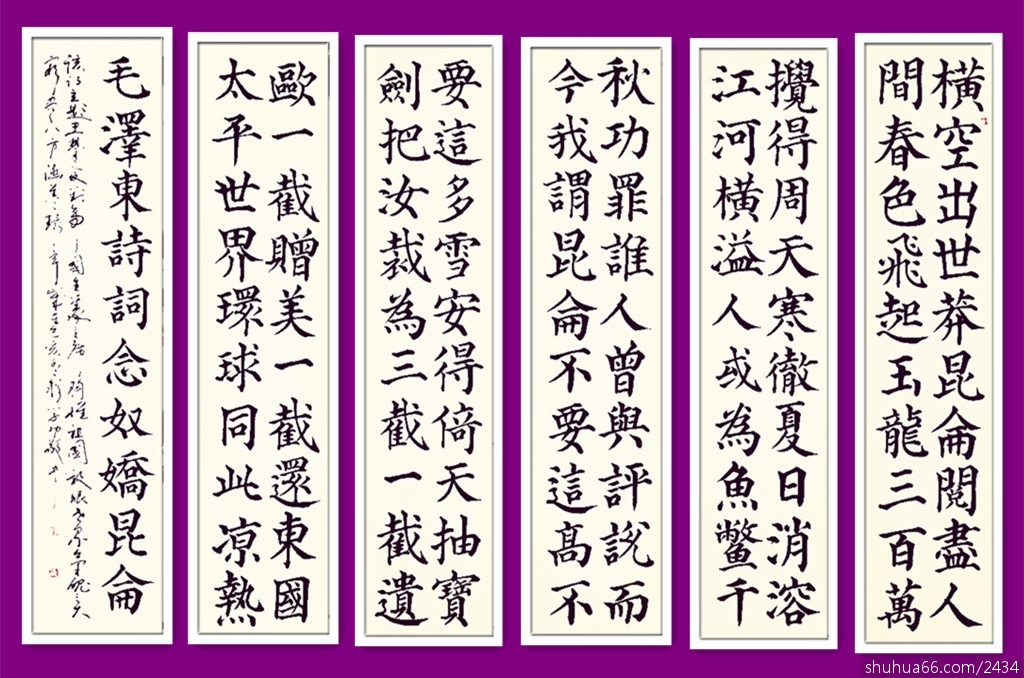 橫空出世莽昆侖閱盡人
間春色飛起玉龍三百萬
攪得周天寒徹夏日消溶
江河橫溢人或為魚鱉千
秋功罪誰人曾與評說而
今我謂昆侖不要這高不
要這多雪安得倚天抽寶
劍把汝裁為三截一截遺
歐一截贈美一截還東國
太平世界環球同此凉熱
毛澤東詩詞念奴嬌昆侖
shuhua66.com/2434